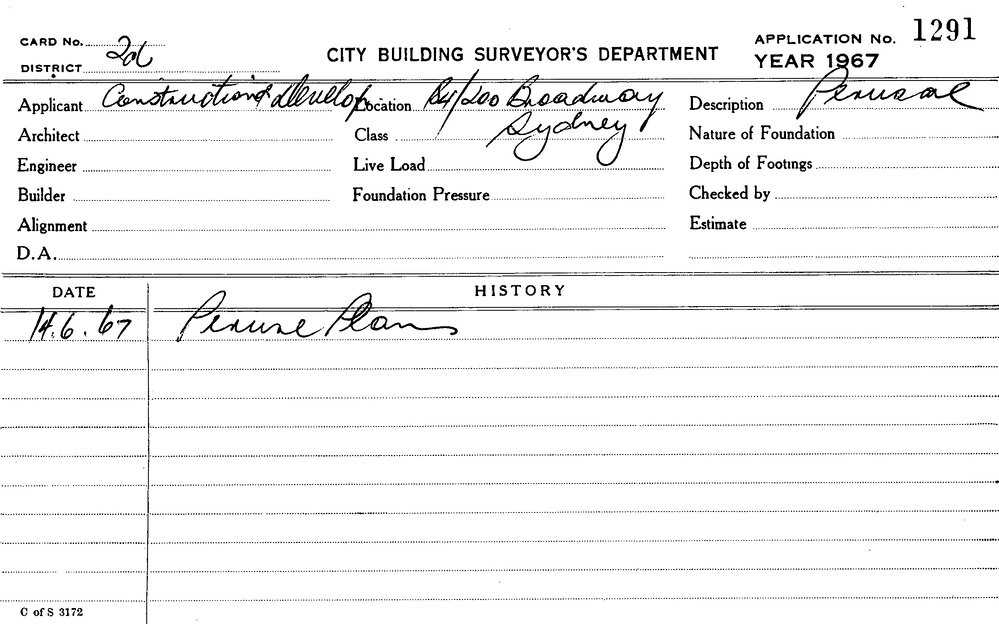 CARD No. 2d
CITY BUILDING SURVEYOR'S DEPARTMENT
APPLICATION No. 1291
DISTRICT
YEAR 1967
Applicant Construction & Develop Location 84/200 Broadway Sydney Description Perusal
Architect Class Nature of Foundation
Engineer Live Load Depth of Footings
Builder Foundation Pressure Checked by
Alignment Estimate
D.A.
DATE HISTORY
14.6.67 Peruse Plans
C of S 3172